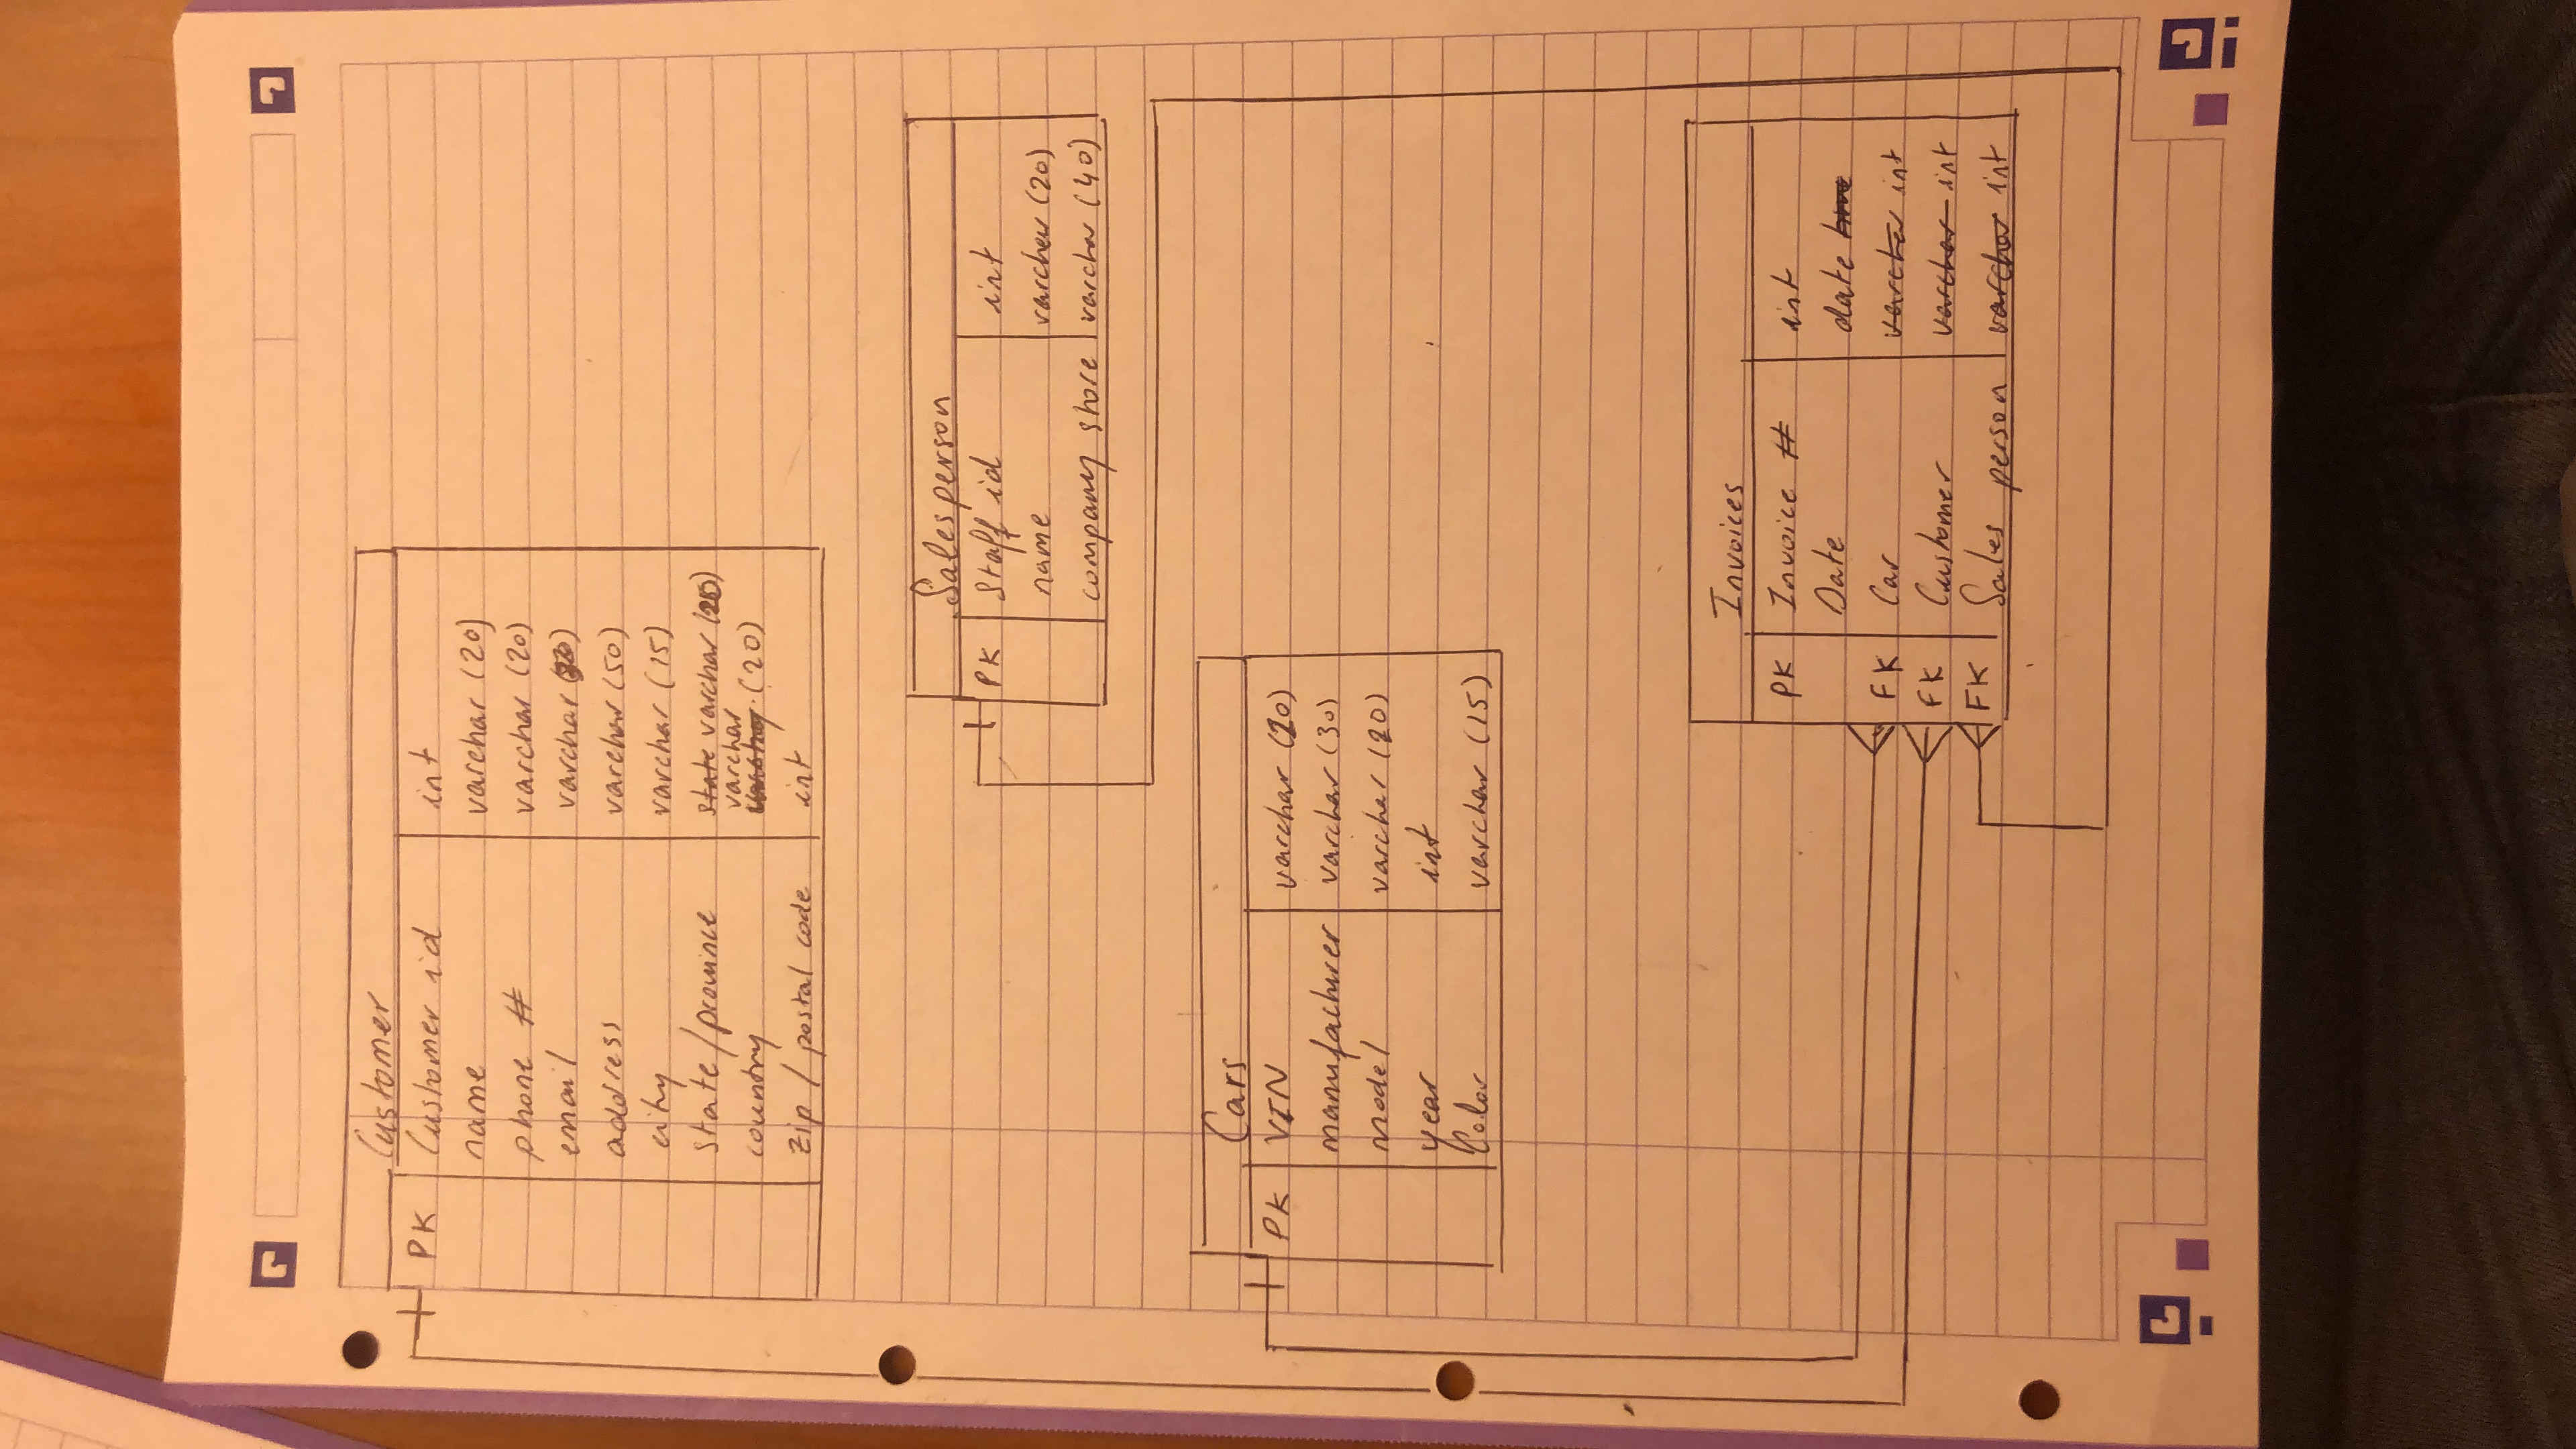 Customer
PK Customer id int
name varchar (20)
phone # varchar (20)
email varchar
address varchar (50)
city varchar (15)
state/province state varchar (20)
country varchar (20)
zip / postal code int
Salesperson
PK Staff id int
name varchar (20)
company store varchar (40)
Cars
PK VIN varchar (20)
manufacturer varchar (30)
model varchar (20)
year int
Color varchar (15)
Invoices
PK Invoice # int
Date date time
FK Car varchar int
FK Customer varchar int
FK Sales person varchar int